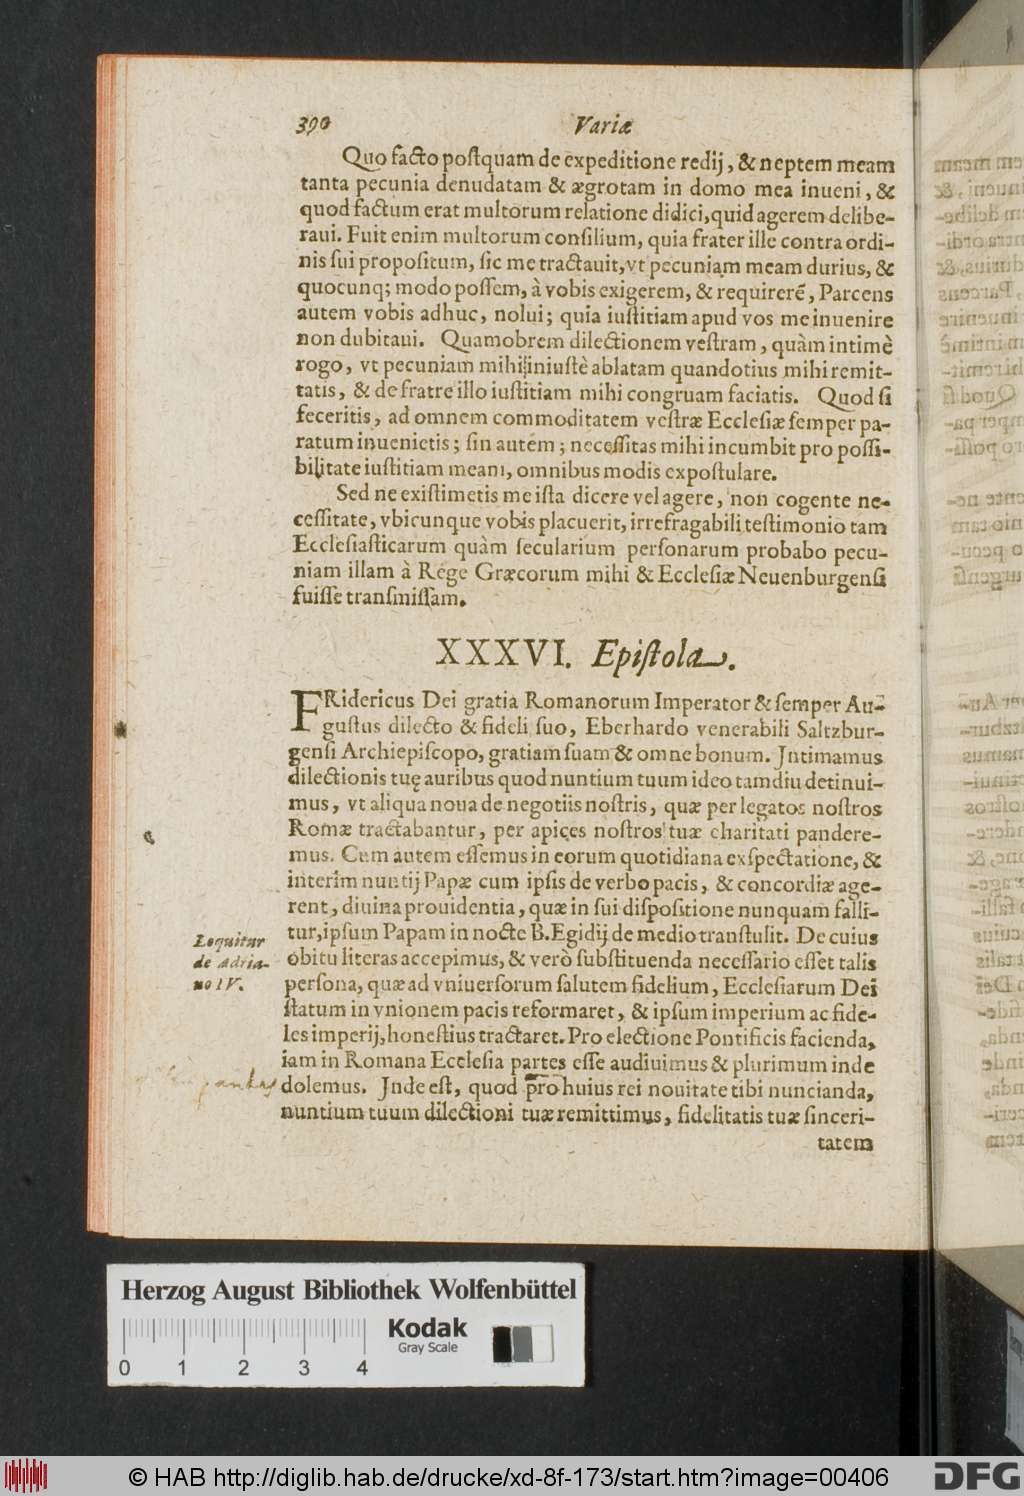 390 Variæ
Quo facto postquam de expeditione redij, & neptem meam
tanta pecunia denudatam & ægrotam in domo mea inueni, &
quod factum erat multorum relatione didici, quid agerem delibe-
raui. Fuit enim multorum consilium, quia frater ille contra ordi-
nis sui propositum, sic me tractauit, vt pecuniam meam durius, &
quocunq; modo possem, à vobis exigerem, & requirerē, Parcens
autem vobis adhuc, nolui; quia iustitiam apud vos me inuenire
non dubitaui. Quamobrem dilectionem vestram, quàm intimè
rogo, vt pecuniam mihi iniustè ablatam quandotius mihi remit-
tatis, & de fratre illo iustitiam mihi congruam faciatis. Quod si
feceritis, ad omnem commoditatem vestræ Ecclesiæ semper pa-
ratum inuenietis; sin autem; necessitas mihi incumbit pro possi-
bilitate iustitiam meam, omnibus modis expostulare.
Sed ne existimetis me ista dicere vel agere, non cogente ne-
cessitate, vbicunque vobis placuerit, irrefragabili testimonio tam
Ecclesiasticarum quàm secularium personarum probabo pecu-
niam illam à Rege Græcorum mihi & Ecclesiæ Neuenburgensi
fuisse transmissam.
XXXVI. Epistola.
FRidericus Dei gratia Romanorum Imperator & semper Au-
gustus dilecto & fideli suo, Eberhardo venerabili Saltzbur-
gensi Archiepiscopo, gratiam suam & omne bonum. Intimamus
dilectionis tuę auribus quod nuntium tuum ideo tamdiu detinui-
mus, vt aliqua noua de negotiis nostris, quæ per legatos nostros
Romæ tractabantur, per apices nostros tuæ charitati pandere-
mus. Cum autem essemus in eorum quotidiana exspectatione, &
interim nuntij Papæ cum ipsis de verbo pacis, & concordiæ age-
rent, diuina prouidentia, quæ in sui dispositione nunquam falli-
tur, ipsum Papam in nocte B. Egidij de medio transtulit. De cuius
obitu literas accepimus, & verò substituenda necessario esset talis
persona, quæ ad vniuersorum salutem fidelium, Ecclesiarum Dei
statum in vnionem pacis reformaret, & ipsum imperium ac fide-
les imperij, honestius tractaret. Pro electione Pontificis facienda,
iam in Romana Ecclesia partes esse audiuimus & plurimum inde
dolemus. Inde est, quod pro huius rei nouitate tibi nuncianda,
nuntium tuum dilectioni tuæ remittimus, fidelitatis tuæ sinceri-
tatem
Loquitur
de Adria-
no IV.
Herzog August Bibliothek Wolfenbüttel
Kodak
Gray Scale
0 1 2 3 4
© HAB http://diglib.hab.de/drucke/xd-8f-173/start.htm?image=00406
DFG